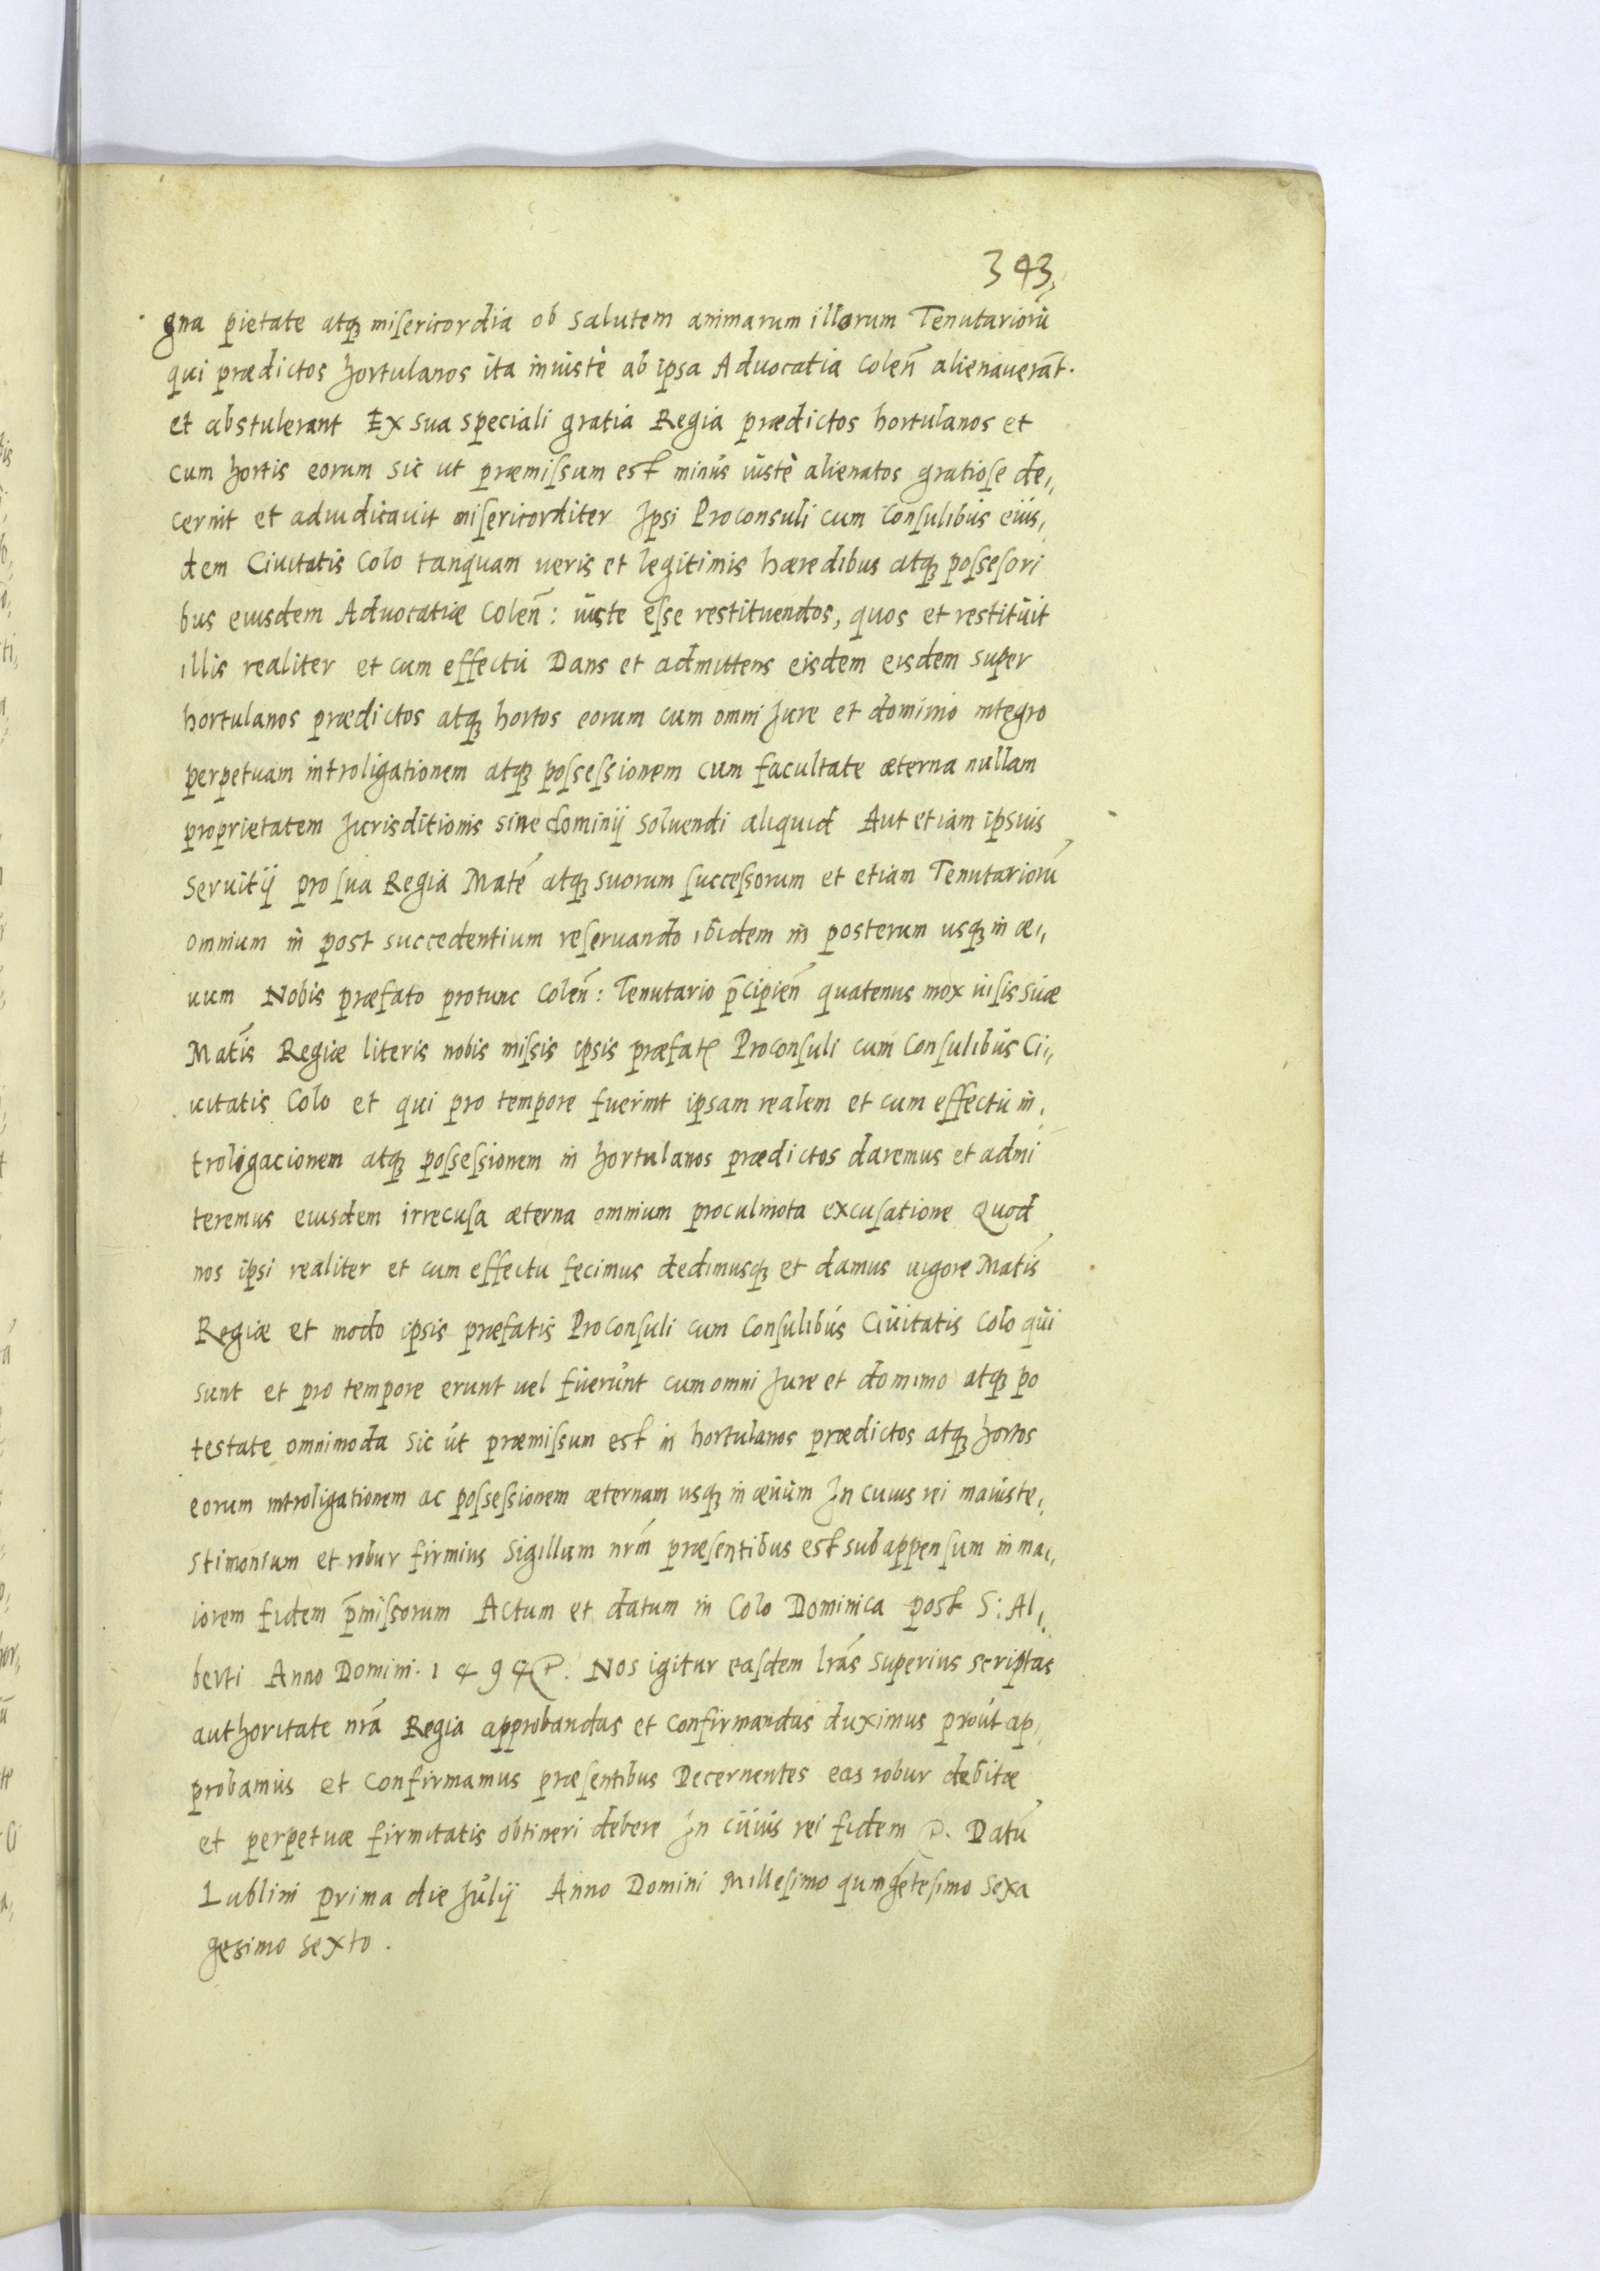 343,
gna pietate atq₃ miſericordia ob salutem animarum illorum Tenutariorū
qui prædictos hortulanos ita iniustè ab ipsa Aduocatia Coleñ alienauerāt.
et abstulerant Ex sua speciali gratia Regia prædictos hortulanos et
cum hortis eorum sic ut præmiſsum est minùs iustè alienatos gratioſe de,
cernit et adiudicauit miſericorditer Ipsi Proconsuli cum Conſulibus eius,
dem Ciuitatis Colo tanquam ueris et legitimis hæredibus atq₃ poſseſori
bus eiusdem Aduocatiæ Coleñ: iuste eſse restituendos, quos et restituit
illis realiter et cum effectu Dans et admittens eisdem eisdem super
hortulanos prædictos atq₃ hortos eorum cum omni Jure et dominio integro
perpetuam introligationem atq₃ poſseſsionem cum facultate æterna nullam
proprietatem Jurisditionis siue dominij soluendi aliquid Aut etiam ipsius
seruitij pro ſua Regia Mate atq₃ suorum ſucceſsorum et etiam Tenutariorū
omnium in post succedentium reſeruando ibidem in posterum usq₃ in æ,
uum Nobis præfato protunc Coleñ: Tenutario p̄cipień quatenus mox uiſis suæ
Matis Regiæ literis nobis miſsis ipsis præfat Proconſuli cum Conſulibus Ci,
uitatis Colo et qui pro tempore fuerint ipsam realem et cum effectu in,
troligacionem atq₃ poſseſsionem in hortulanos prædictos daremus et admi
teremus eiusdem irrecuſa æterna omnium proculmota excuſatione Quod
nos ipsi realiter et cum effectu fecimus dedimusq₃ et damus uigore Matis
Regiæ et modo ipsis præfatis Proconſuli cum Conſulibus Ciuitatis Colo qui
sunt et pro tempore erunt uel fuerunt cum omni Jure et dominio atq₃ po
testate omnimoda sic ut præmiſsum est in hortulanos prædictos atq₃ hortos
eorum introligationem ac poſseſsionem æternam usq₃ in æuum In cuius rei maius te,
stimonium et robur firmius Sigillum nrm̄ præſentibus est subappensum in ma,
iorem fidem p̄miſsorum Actum et datum in Colo Dominica post S: Al,
berti Anno Domini. 1494 Nos igitur eaſdem lrās superius scriptas
authoritate nrā Regia approbandas et confirmandas duximus prout ap,
probamus et confirmamus præſentibus Decernentes eas robur debitæ
et perpetuæ firmitatis obtineri debere In cuius rei fidem Datū
Lublini prima die Julij Anno Domini Milleſimo quingēteſimo sexa
gesimo sexto.